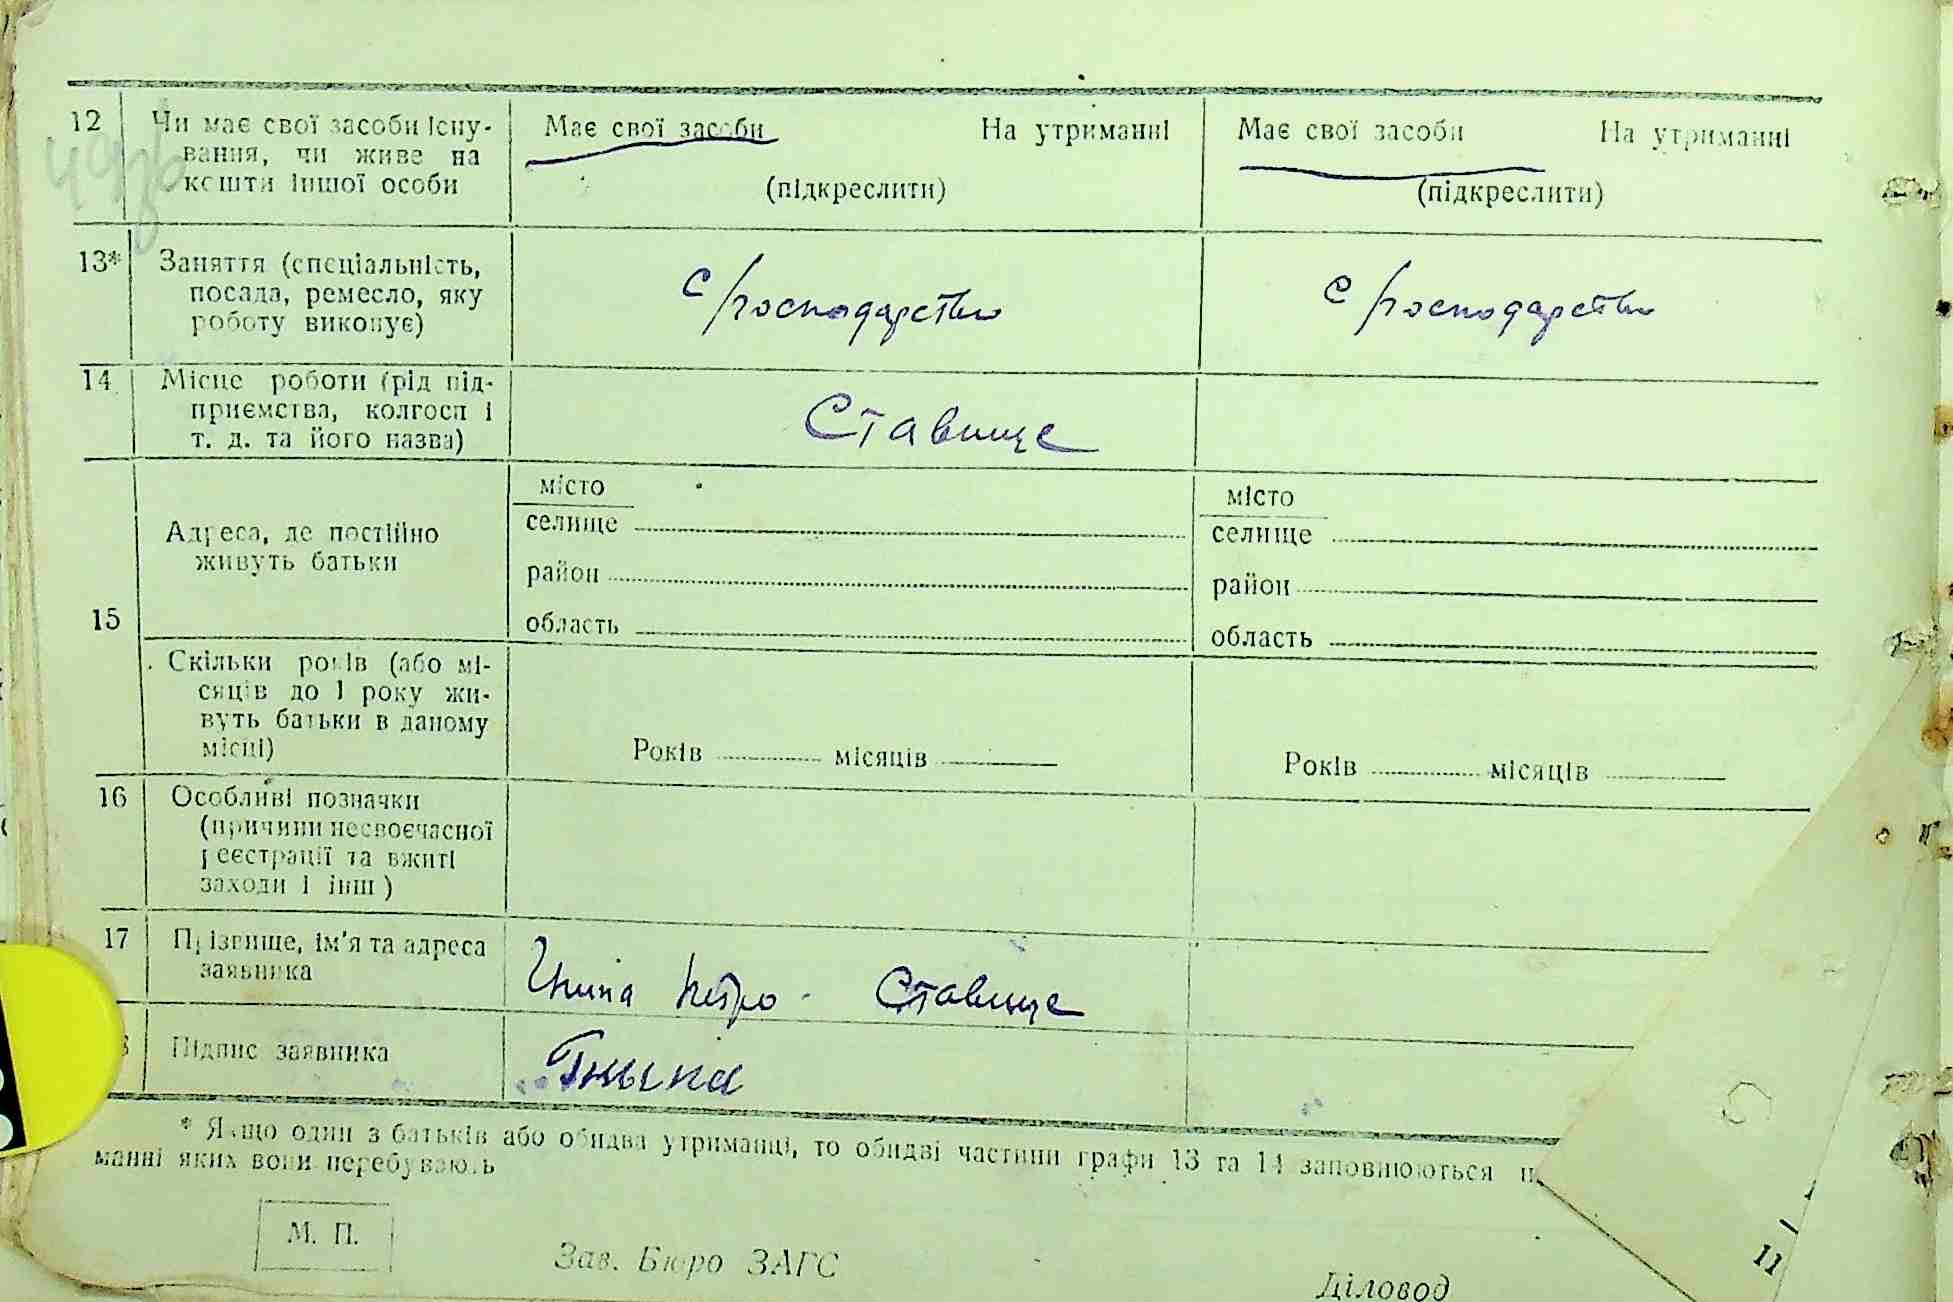 12 Чи має свої засоби існу-
вання, чи живе на
кошти іншої особи
Має свої засоби На утриманні
(підкреслити)
Має свої засоби На утриманні
(підкреслити)
13* Заняття (спеціальність,
посада, ремесло, яку
роботу виконує)
с/господарство
с/господарство
14 Місце роботи (рід під-
приємства, колгосп і
т. д. та його назва)
Ставище
15
Адреса, де постійно
живуть батьки
місто
селище
район
область
місто
селище
район
область
Скільки років (або мі-
сяців до 1 року жи-
вуть батьки в даному
місці)
Років місяців
Років місяців
16 Особливі позначки
(причини несвоєчасної
реєстрації та вжиті
заходи і інш)
17 Прізвище, ім'я та адреса
заявника
Петро - Ставище
Підпис заявника
* Якщо один з батьків або обидва утриманці, то обидві частини графи 13 та 14 заповнюються
манні яких вони перебувають
М. П.
Зав. Бюро ЗАГС
Діловод
11